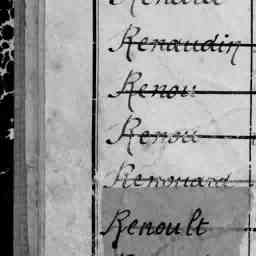 Renaudin
Renou
Renou
Renouard
Renoult